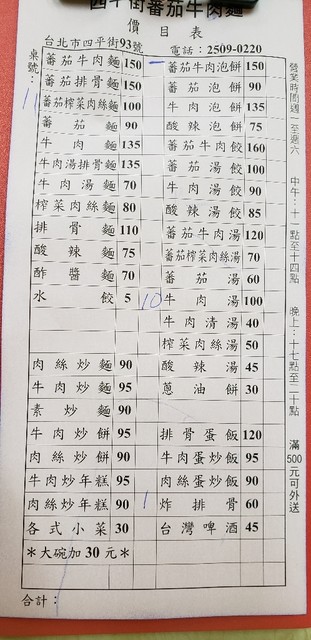 四平街番茄牛肉麵
價目表
台北市四平街93號 電話：2509-0220
桌號：11
番茄牛肉麵 150
番茄排骨麵 150
番茄榨菜肉絲麵 100
番茄麵 90
牛肉麵 135
牛肉湯排骨麵 135
牛肉湯麵 70
榨菜肉絲麵 80
排骨麵 110
酸辣麵 75
酢醬麵 70
水餃 5 10
肉絲炒麵 90
牛肉炒麵 95
素炒麵 90
牛肉炒餅 95
肉絲炒餅 90
牛肉炒年糕 95
肉絲炒年糕 90
各式小菜 30
＊大碗加30元＊
合計：
番茄牛肉泡餅 150
番茄泡餅 90
牛肉泡餅 135
酸辣泡餅 75
番茄牛肉餃 160
番茄湯餃 100
牛肉湯餃 90
酸辣湯餃 85
番茄牛肉湯 120
番茄榨菜肉絲湯 70
番茄湯 60
牛肉湯 100
牛肉清湯 40
榨菜肉絲湯 50
酸辣湯 45
蔥油餅 30
排骨蛋飯 120
牛肉蛋炒飯 95
肉絲蛋炒飯 90
炸排骨 60
台灣啤酒 45
營業時間週一至週六 中午：十一點至十四點 晚上：十七點至二十點 滿500元可外送